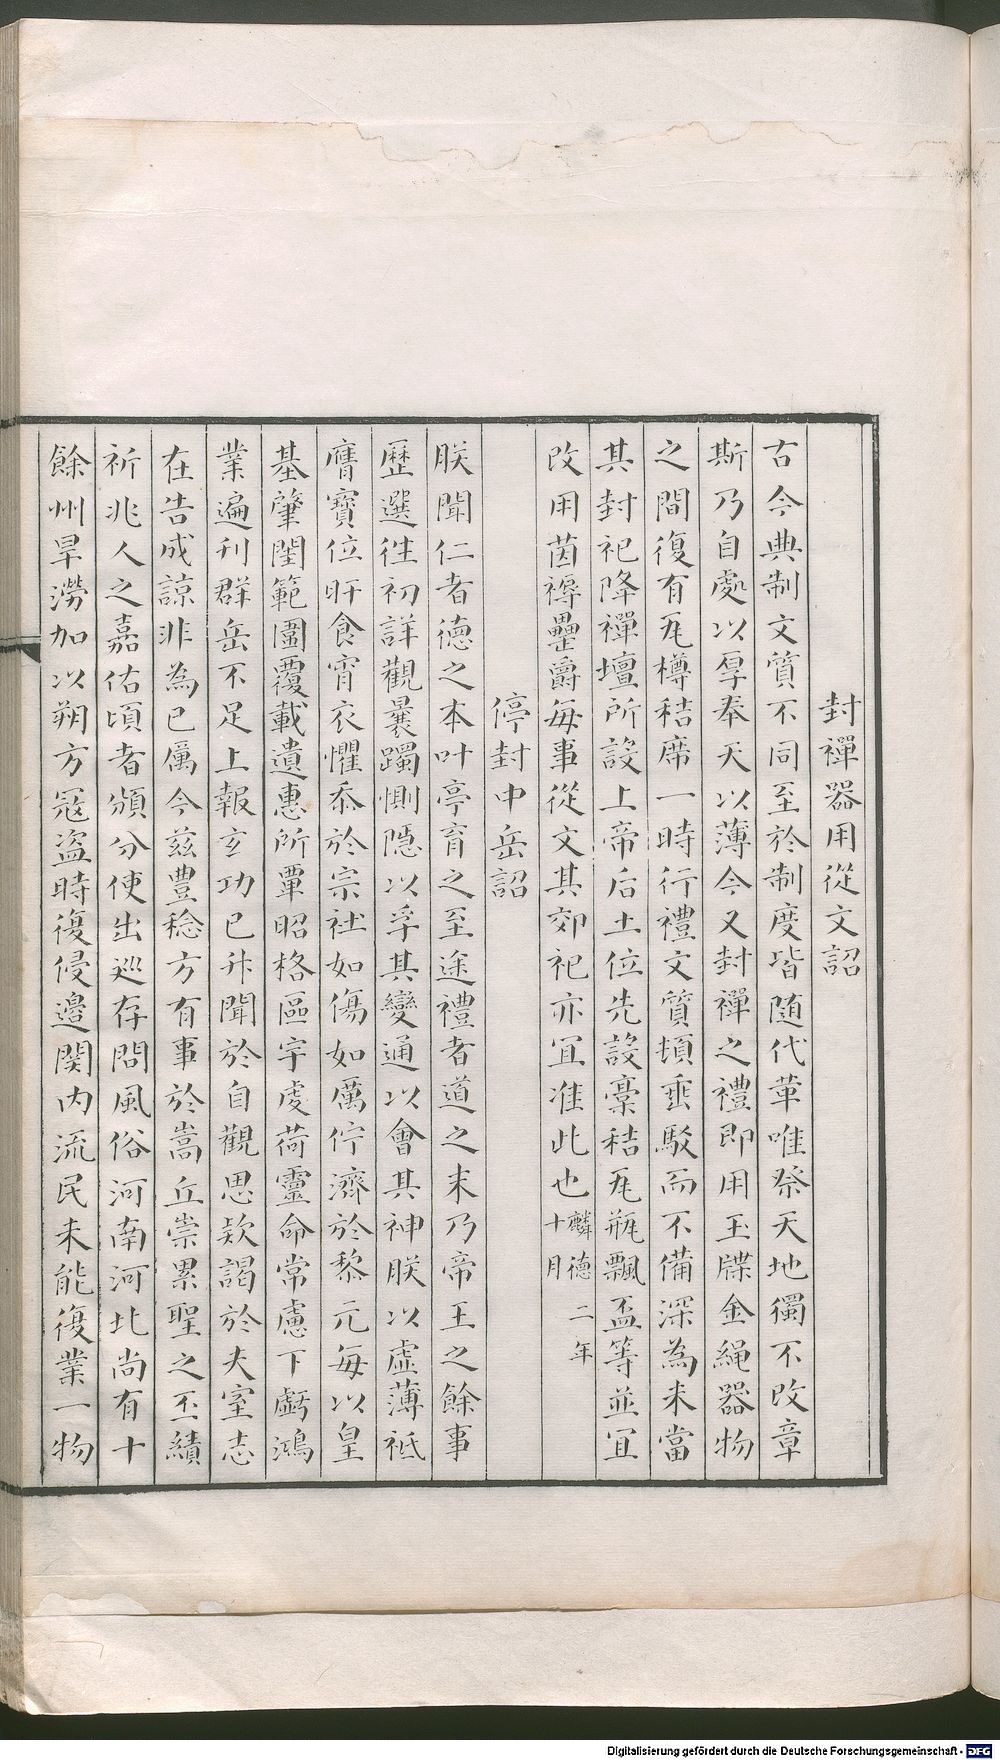 封禪器用從文詔
古今典制文質不同至於制度堦随代革唯祭天地獨不改章
斯乃自處以厚奉天以薄今又封禪之禮即用玉牒金繩器物
之間復有瓦樽秸席一時行禮文質頓乖駁而不備深為未當
其封祀降禪壇所設上帝后土位先設藁秸瓦瓶瓢盃等並宜
改用茵褥罍爵每事從文其郊祀亦宜准此也麟德二年
十月
停封中岳詔
朕聞仁者德之本叶亭育之至途禮者道之末乃帝王之餘事
歷選徃初詳觀曩躅惻隠以孚其變通以會其神朕以虛薄祗
膺寶位旰食宵衣懼忝於宗社如傷如厲佇濟於黎元每以皇
基肇闢範圍覆載遺惠所覃昭格區宇虔荷靈命常慮下虧鴻
業遍刋群岳不足上報玄功已升聞於自觀思欵謁於夫室志
在告成諒非為已属今兹豊稔方有事於嵩丘崇累聖之丕績
祈兆人之嘉佑頃者頒分使出巡存問風俗河南河北尚有十
餘州旱澇加以朔方冦盗時復侵邉関内流民未能復業一物
Digitalisierung gefördert durch die Deutsche Forschungsgemeinschaft - DFG